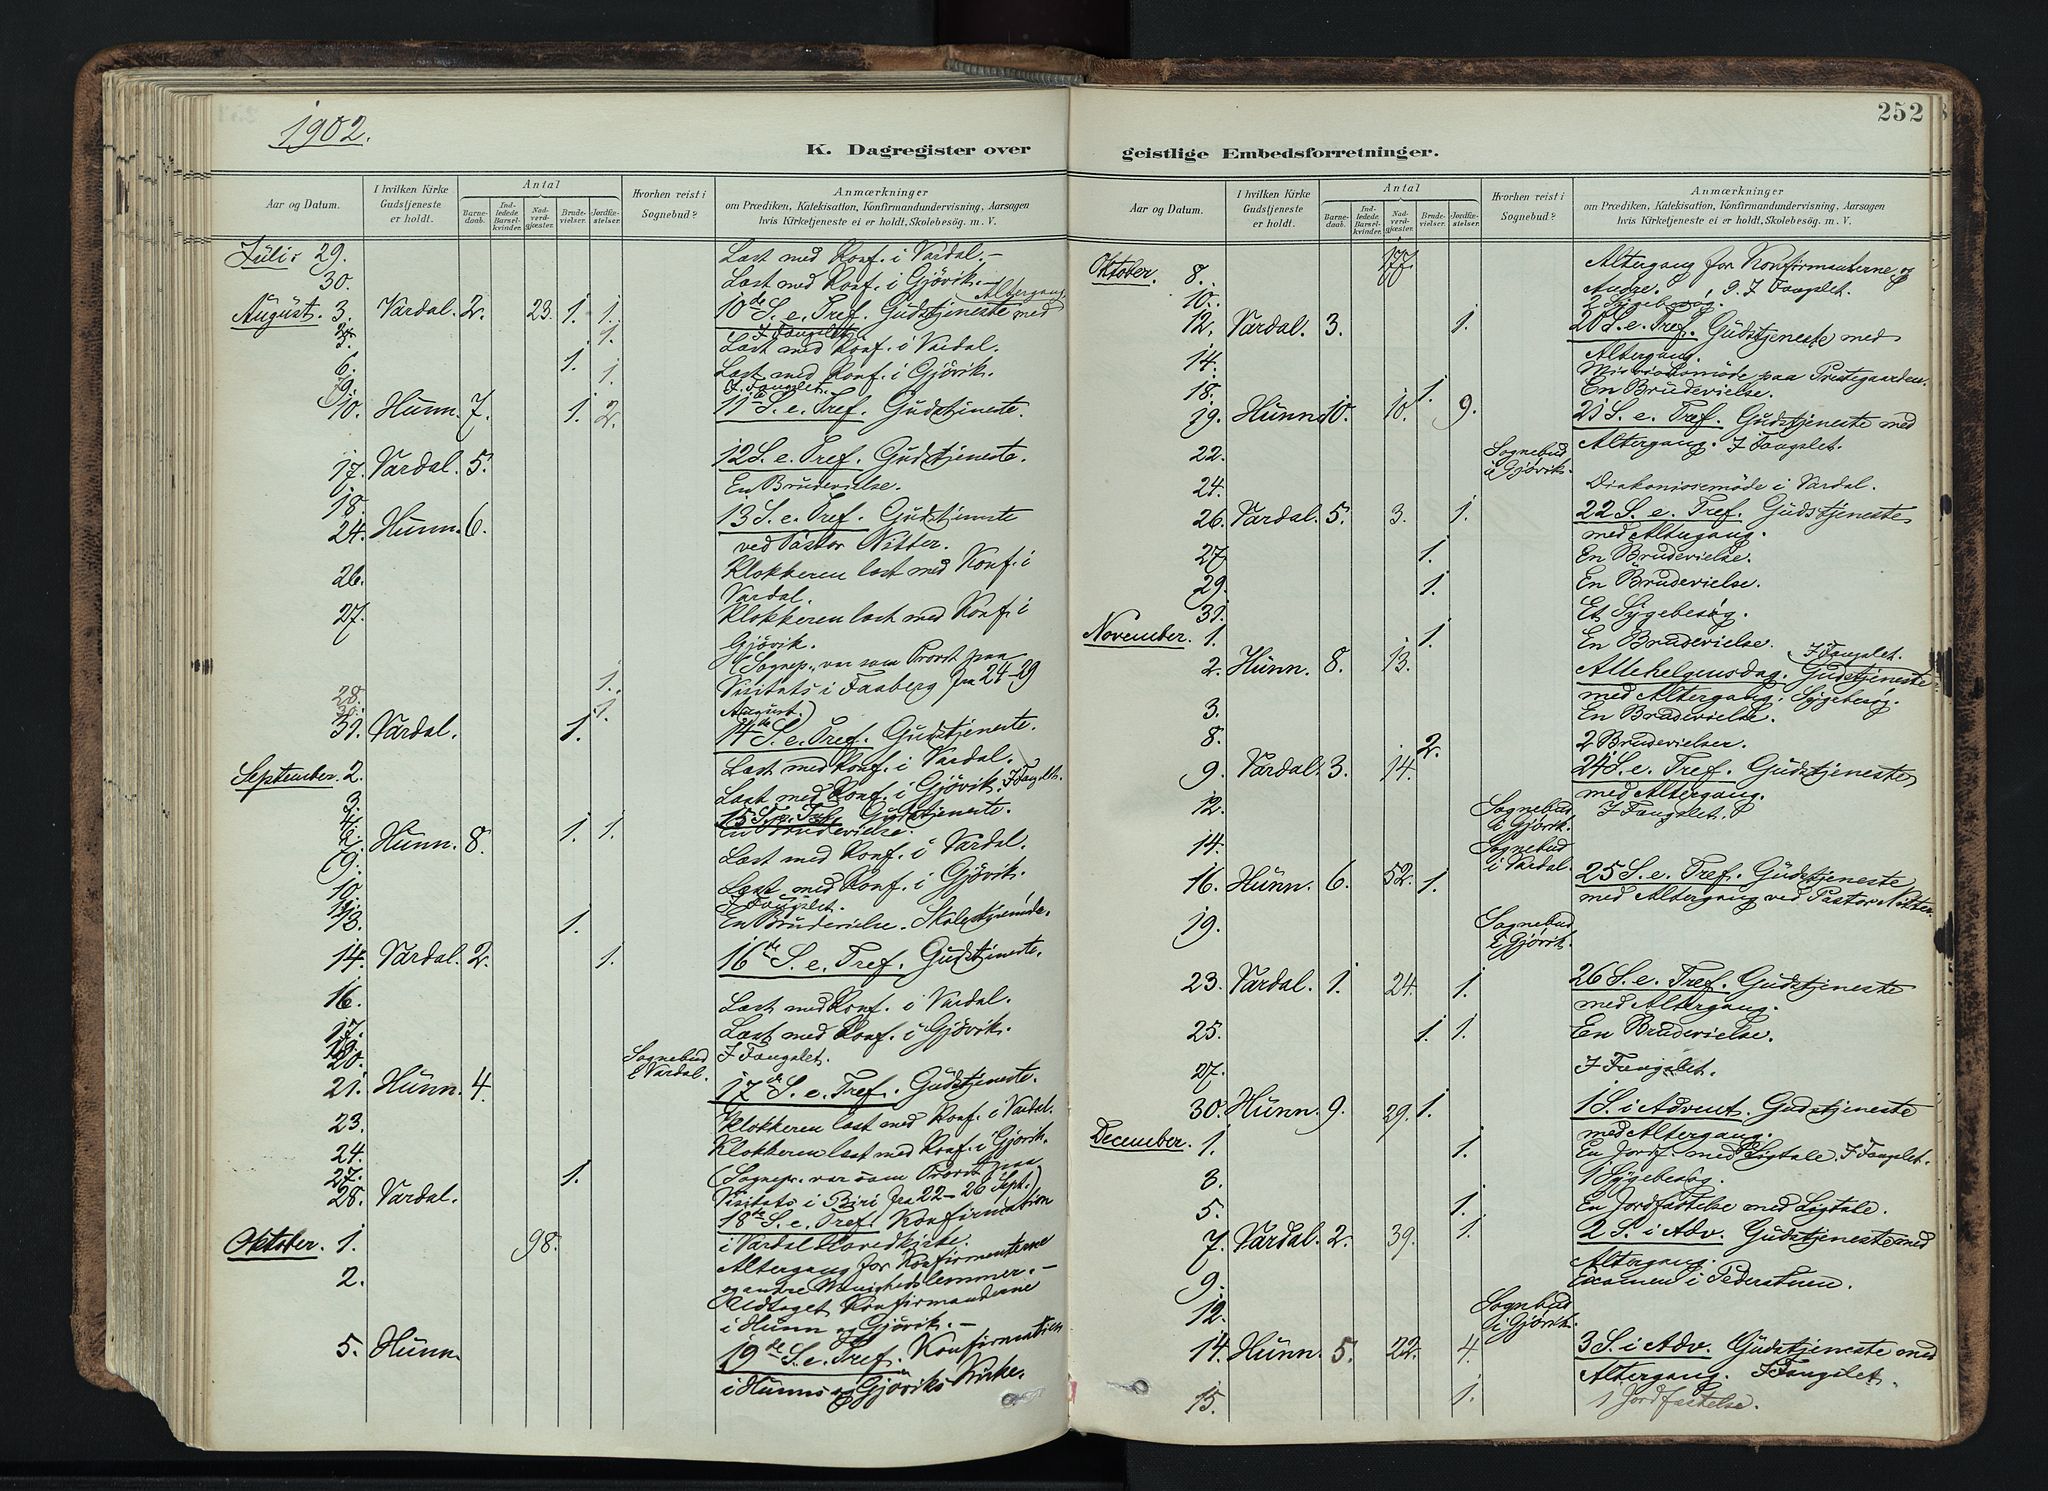 1902.
K. Dagregister over
Aar og Datum.
I hvilken Kirke Gudstjeneste er holdt.
Antal
Barnedaab.
Indledede Barselkvinder.
Nadverdgjæster.
Brudevielser.
Jordfæstelser.
Hvorhen reist i Sognebud?
Anmærkninger
om Prædiken, Katekisation, Konfirmandundervisning, Aarsagen
hvis Kirketjeneste ei er holdt, Skolebesög. m. V.
Juli 29. Læst med Konf. i Vardal.-
30. Læst med Konf. i Gjövik.-
Altergang
August. 3. Vardal. 2. 23. 1. 1. 10de S. e. Tref. Gudstjeneste med
I Fangslet.
5. 1. Læst med Konf. i Vardal.
6. 1. Læst med Konf. i Gjövik.
9. 1. I Fangslet.
10. Hunn. 7. 1. 2. 11te S. e. Tref. Gudstjeneste.
17. Vardal. 5. 12 S. e. Tref. Gudstjeneste.
18. En Brudevielse.
24. Hunn. 6. 13 S. e. Tref. Gudstjeneste
ved Pastor Nitter.
26. Klokkeren læst med Konf. i
Vardal.
27. Klokkeren læst med Konf. i
Gjövik.
(Sognep. var som Provst paa
28. 1. Visitats i Faaberg fra 24-29
30. 1. August.)
31. Vardal. 1. 14de S. e. Tref. Gudstjeneste.
September. 2. Læst med Konf. i Vardal.
3. Læst med Konf. i Gjövik. I Fangslet.
4.
Hunn. 8. 1. 1. 15 S. e. Tref. Gudstjeneste.
En Brudevielse.
9. Læst med Konf. i Vardal.
10. Læst med Konf. i Gjövik.
I Fangslet.
13. 1. En Brudevielse.
14. Vardal. 2. 1. 16de S. e. Tref. Gudstjeneste.
16. Læst med Konf. i Vardal.
17. Læst med Konf. i Gjövik.
20. Sognebud i Vardal. I Fangslet.
21. Hunn. 4. 17de S. e. Tref. Gudstjeneste.
23. Klokkeren læst med Konf. i Vardal.
24. Klokkeren læst med Konf. i Gjövik.
27. 1. (Sognepr. var som Provst paa
28. Vardal. Visitats i Biri fra 22-26 Sept.)
18de S. e. Tref. Konfirmation
i Vardal Hovedkirke.
Oktober. 1. 98. Altergang for Konfirmanterne
og andre Menighedslemmer.-
2. Udtaget Konfirmanderne
i Hunn og Gjövik.-
5. Hunn. 19de S. e. Tref. Konfirmation
i Hunns og Gjöviks Kirke.
252
geistlige Embedsforretninger.
Aar og Datum.
I hvilken Kirke Gudstjeneste er holdt.
Antal
Barnedaab.
Indledede Barselkvinder.
Nadverdgjæster.
Brudevielser.
Jordfæstelser.
Hvorhen reist i Sognebud?
Anmærkninger
om Prædiken, Katekisation, Konfirmandundervisning, Aarsagen
hvis Kirketjeneste ei er holdt, Skolebesög. m. V.
Oktober. 8. 177. Altergang for Konfirmanterne og
Andre. I Fangslet.
10. 2 Sygebesög.
12. Vardal. 3. 1. 20 S. e. Tref. Gudstjeneste med
Altergang.
14. Missionsmöde paa Prestegaarden.
18. 1. En Brudevielse.
19. Hunn. 10. 10. 9. 21 S. e. Tref. Gudstjeneste med
Altergang. I Fangslet.
22. Sognebud i Gjövik.
24. Diakonissemöde i Vardal.
26. Vardal. 5. 3. 1. 22 S. e. Tref. Gudstjeneste
med Altergang.
27. 1. En Brudevielse.
29. 1. En Brudevielse.
31. Et Sygebesøg.
November. 1. 1. En Brudevielse.
I Fangslet.
2. Hunn. 8. 13. Allehelgensdag. Gudstjeneste
med Altergang. Sygebesøg.
3. En Brudevielse.
8. 2. 2 Brudevielser.
9. Vardal. 3. 14. 24 S. e. Tref. Gudstjeneste
med Altergang.
12. Sognebud i Gjövik. I Fangslet.
14. Sognebud i Vardal.
16. Hunn. 6. 52. 1. 25 S. e. Tref. Gudstjeneste
med Altergang ved Pastor Nitter.
19. Sognebud i Gjövik.
23. Vardal. 1. 24. 1. 26 S. e. Tref. Gudstjeneste
med Altergang.
25. 1. 1. En Brudevielse.
27. I Fangslet.
30. Hunn. 9. 29. 1. 1 S. i Advent. Gudstjeneste
med Altergang.
December. 1. 1. En Jordf. med Ligtale. I Fangslet.
3. 1 Sygebesög.
5. 1. En Jordfæstelse med Ligtale.
7. Vardal. 2. 39. 1. 2 S. i Adv. Gudstjeneste med
Altergang.
9. Examen i
12. Sognebud i Gjövik.
14. Hunn. 5. 22. 4. 3 S. i Adv. Gudstjeneste med
Altergang. I Fangslet.
15. 1. 1 Jordfæstelse.